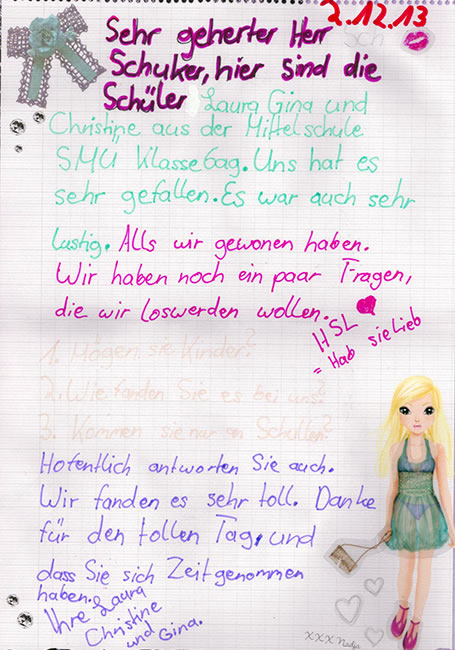 2.12.13
Sehr geherter Herr
Schuker, hier sind die
Schüler Laura Gina und
Christine aus der Mittelschule
SMÜ Klasse 6ag. Uns hat es
sehr gefallen. Es war auch sehr
lustig. Alls wir gewonen haben.
Wir haben noch ein paar Fragen,
die wir loswerden wollen.
HSL
= Hab sie Lieb
1. Mögen sie Kinder?
2. Wie fanden Sie es bei uns?
3. Kommen sie nur an Schulen?
Hofentlich antworten Sie auch.
Wir fanden es sehr toll. Danke
für den tollen Tag, und
dass Sie sich Zeit genommen
haben.
Ihre Laura
Christine
und Gina.
XXX Nadja